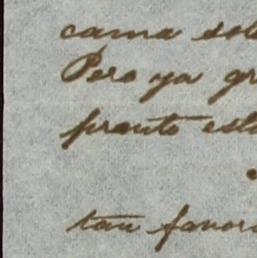 cama sol
Pero ya gr
pronto est
tan favor